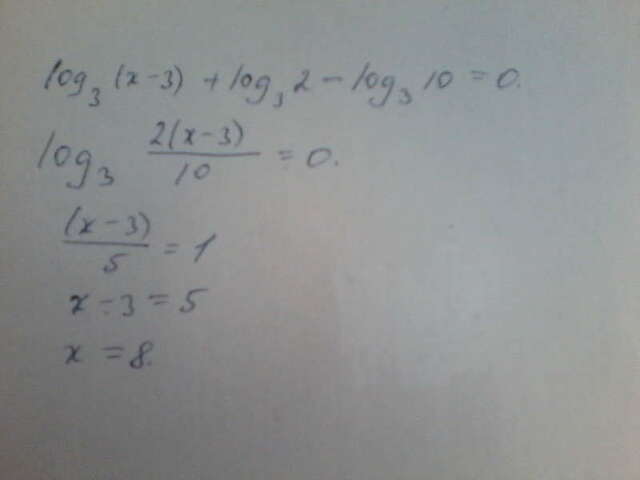 log₃ (x-3) + log₃ 2 - log₃ 10 = 0.
log₃ 2(x-3)/10 = 0.
(x-3)/5 = 1
x-3 = 5
x = 8.